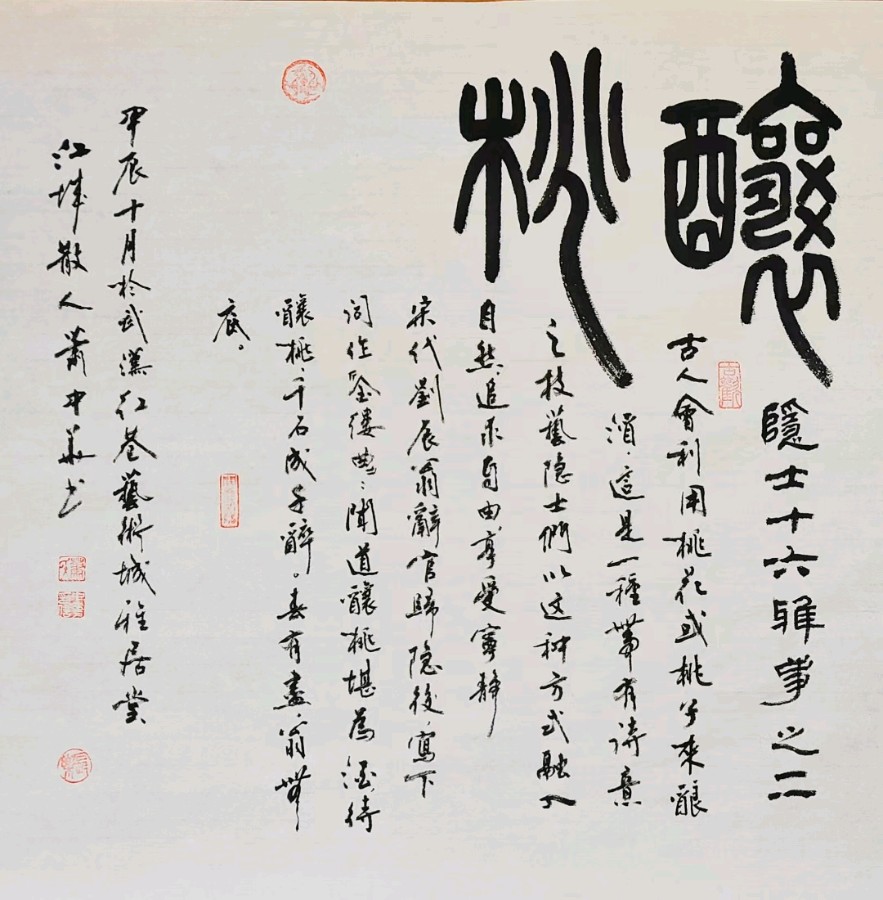 釀桃
隱士十六雅事之二
古人會利用桃花或桃子來釀
酒、這是一種帶有詩意
之技藝隐士們以这种方式融入
自然、追求自由、享受寧静
宋代劉辰翁辭官歸隐後、寫下
词作金缕曲：聞道釀桃堪為酒、待
釀桃、千石成千醉。春有盡、翁無
底。
甲辰十月於武漢红巷藝術城雅居堂
江城散人萧中華书